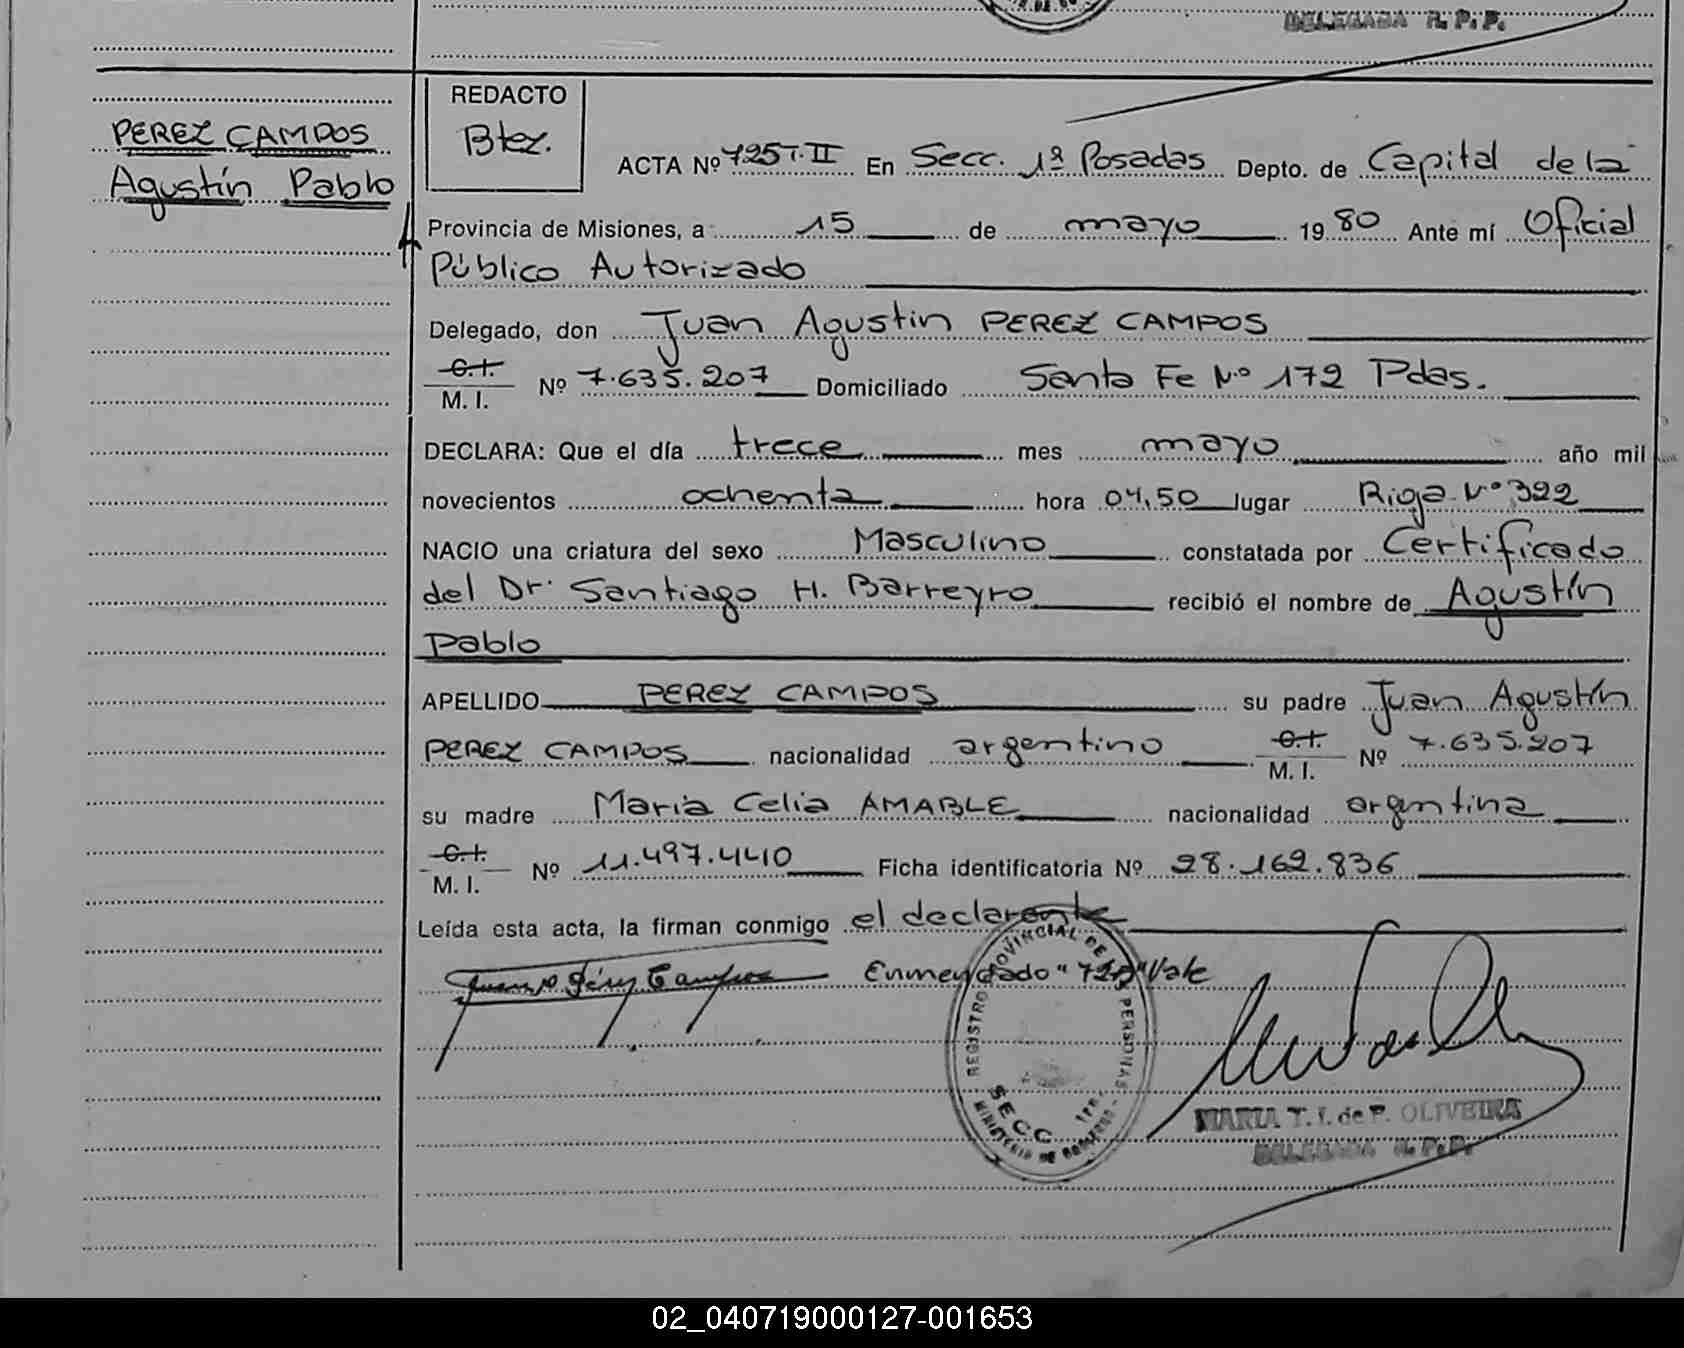 DELEGADA R. P. P.
PEREZ CAMPOS
Agustín Pablo
REDACTO
Btez.
ACTA Nº 725 T. II En Secc. 1ª Posadas Depto. de Capital de la
Provincia de Misiones, a 15 de mayo 19 80 Ante mí Oficial
Público Autorizado
Delegado, don Juan Agustin PEREZ CAMPOS
C.I.
M. I. Nº 7.635.207 Domiciliado Santa Fe Nº 172 Pdas.
DECLARA: Que el día trece mes mayo año mil
novecientos ochenta hora 04,50 lugar Rioja Nº 392
NACIO una criatura del sexo Masculino constatada por Certificado
del Dr. Santiago H. Barreyro recibió el nombre de Agustín
Pablo
APELLIDO PEREZ CAMPOS su padre Juan Agustín
PEREZ CAMPOS nacionalidad argentino C.I.
M. I. Nº 7.635.207
su madre María Celia AMABLE nacionalidad argentina
C.I.
M. I. Nº 11.497.440 Ficha identificatoria Nº 28.162.836
Leída esta acta, la firman conmigo el declarante
Enmendado "725" Vale
REGISTRO PROVINCIAL DE PERSONAS
SECC. 1ra.
MINISTERIO DE GOBIERNO
MARIA T. I. de P. OLIVEIRA
DELEGADA R. P. P.
02_040719000127-001653